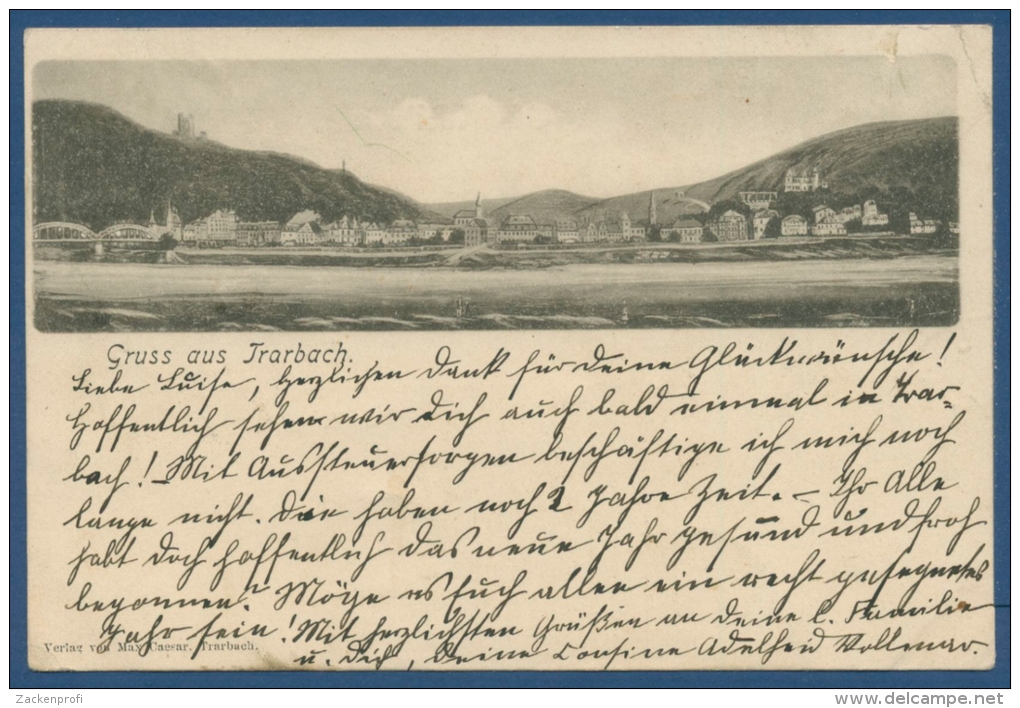 Gruss aus Trarbach.
Liebe Luise, Herzlichen Dank für deine Glückwünsche!
Hoffentlich sehen wir dich auch bald einmal in Trar-
bach! Mit Aussteuersorgen beschäftige ich mich noch
lange nicht. Die haben noch 2 Jahre Zeit. – Ihr Alle
habt doch hoffentlich das neue Jahr gesund und froh
begonnen? Möge es Euch allen ein recht gesegnetes
Jahr sein! Mit herzlichsten Grüßen an deine l. Familie
u. dich, deine Cousine Adelheid
Verlag von Max Caesar, Trarbach.
Zackenprofi
www.delcampe.net